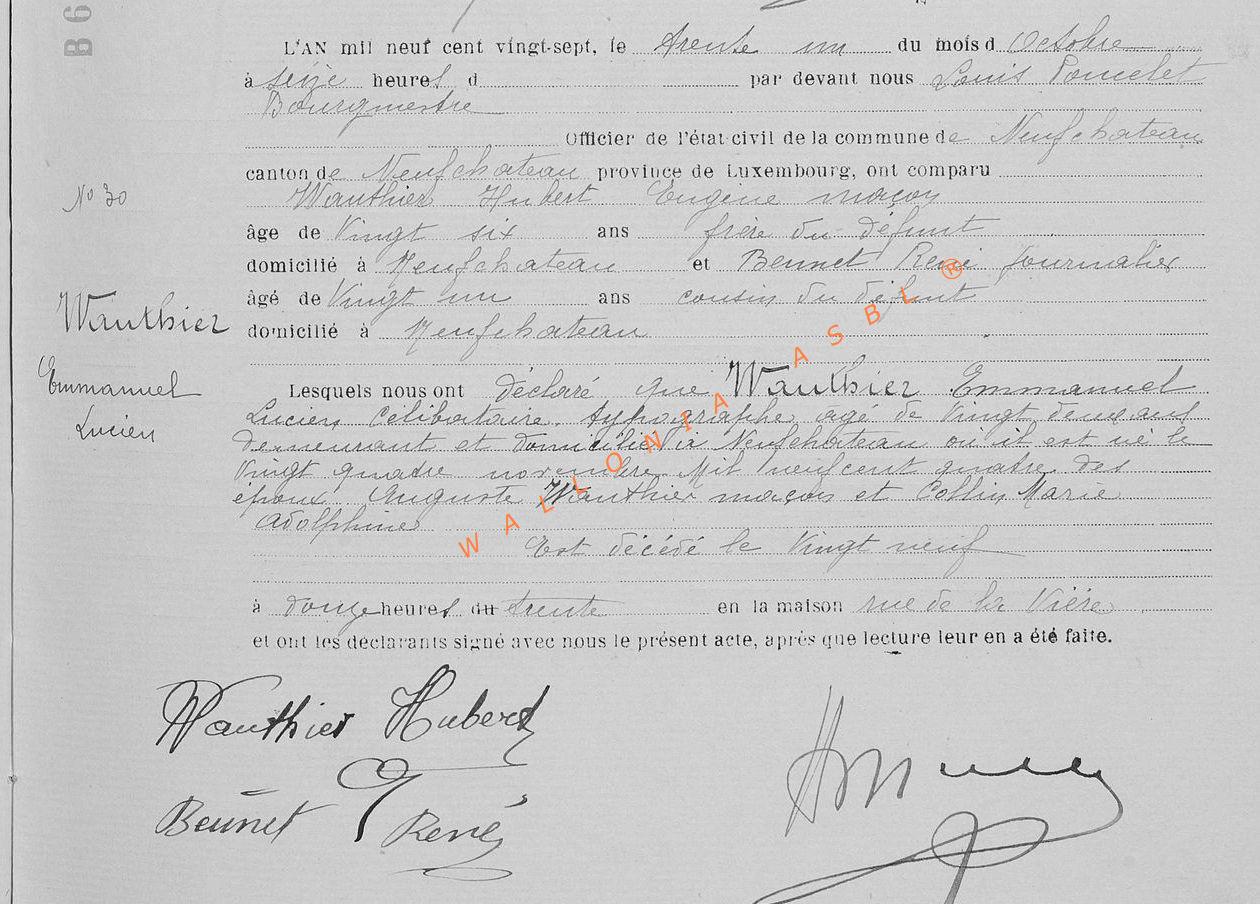 B 6
L'AN mil neuf cent vingt-sept, le trente un du mois d Octobre
à seize heures d par devant nous Louis Poncelet
Bourgmestre
Officier de l'état civil de la commune de Neufchateau
canton de Neufchateau province de Luxembourg, ont comparu
N° 30
Wauthier Hubert Eugène maçon
âge de Vingt six ans frère du défunt
domicilié à Neufchateau et Bennet René Journalier
âgé de Vingt un ans cousin du défunt
Wauthier
domicilié à Neufchateau
Emmanuel
Lucien
Lesquels nous ont déclaré que Wauthier Emmanuel
Lucien Célibataire, typographe, agé de Vingt deux ans
demeurant et domicilié à Neufchateau où il est né le
Vingt quatre novembre Mil neuf cent quatre des
époux Auguste Wauthier maçon et Collin Marie
Adolphine
Est décédé le Vingt neuf
à douze heures du trente en la maison rue de la Vière
et ont les déclarants signé avec nous le présent acte, après que lecture leur en a été faite.
Wauthier Hubert
Bennet René
WALLONIA ASBL ®